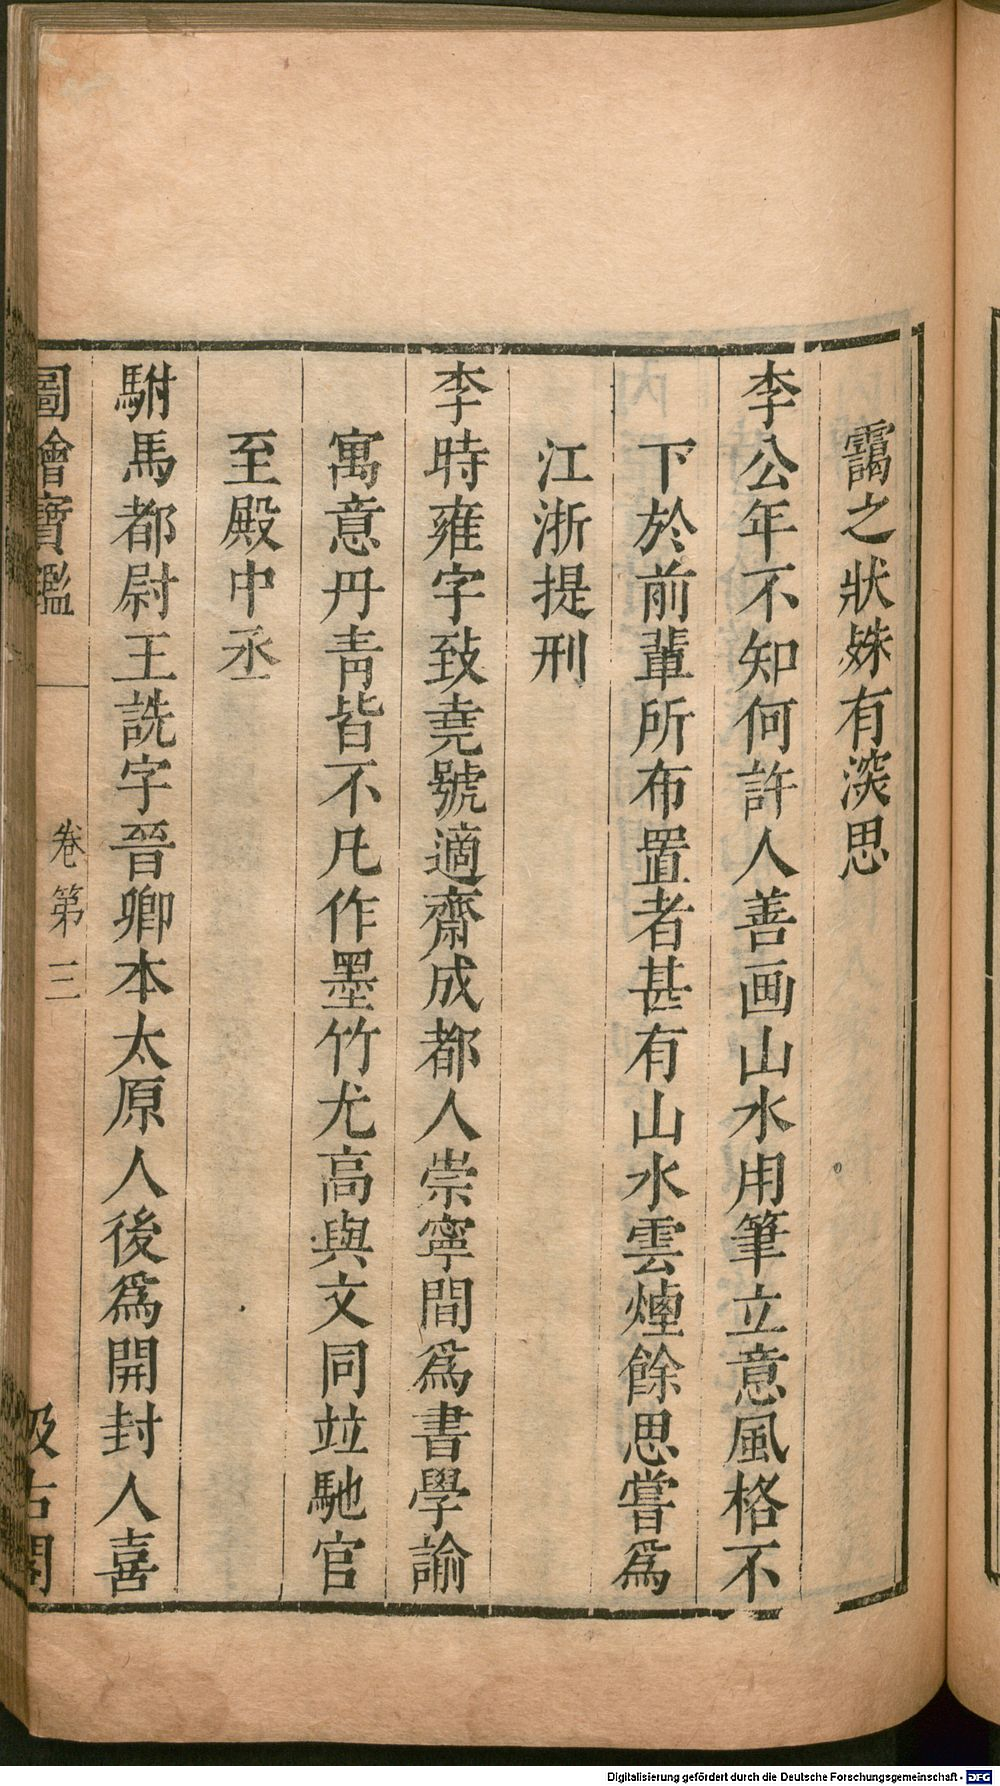 靄之狀姝有深思
李公年不知何許人善画山水用筆立意風格不
下於前輩所布置者甚有山水雲煙餘思嘗爲
江浙提刑
李時雍字致堯號適齋成都人崇寧間爲書學諭
寓意丹青皆不凡作墨竹尤高與文同竝馳官
至殿中丞
駙馬都尉王詵字晉卿本太原人後爲開封人喜
圖繪寶鑑 卷第三 汲古閣
Digitalisierung gefördert durch die Deutsche Forschungsgemeinschaft - DFG